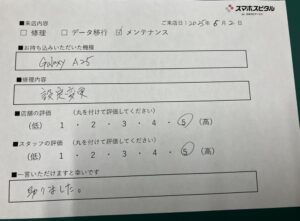 スマホスピタル
■来店内容 ご来店日：2025年6月2日
□ 修理 □ データ移行 ☑ メンテナンス
■お持ち込みいただいた機種
Galaxy A25
■修理内容
設定変更
■店舗の評価 (丸を付けて評価してください)
(低) 1 ・ 2 ・ 3 ・ 4 ・ 5 (高)
■スタッフの評価 (丸を付けて評価してください)
(低) 1 ・ 2 ・ 3 ・ 4 ・ 5 (高)
■一言いただけますと幸いです
助かりました。